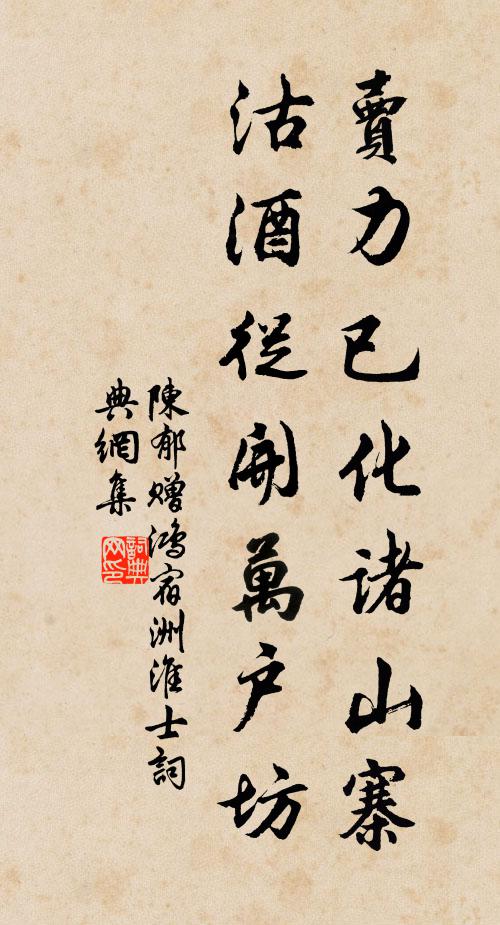 賣力已化諸山寨
沽酒從開萬户坊
陳郁贈鴻宿洲淮士詞
典網集
詞典
网印